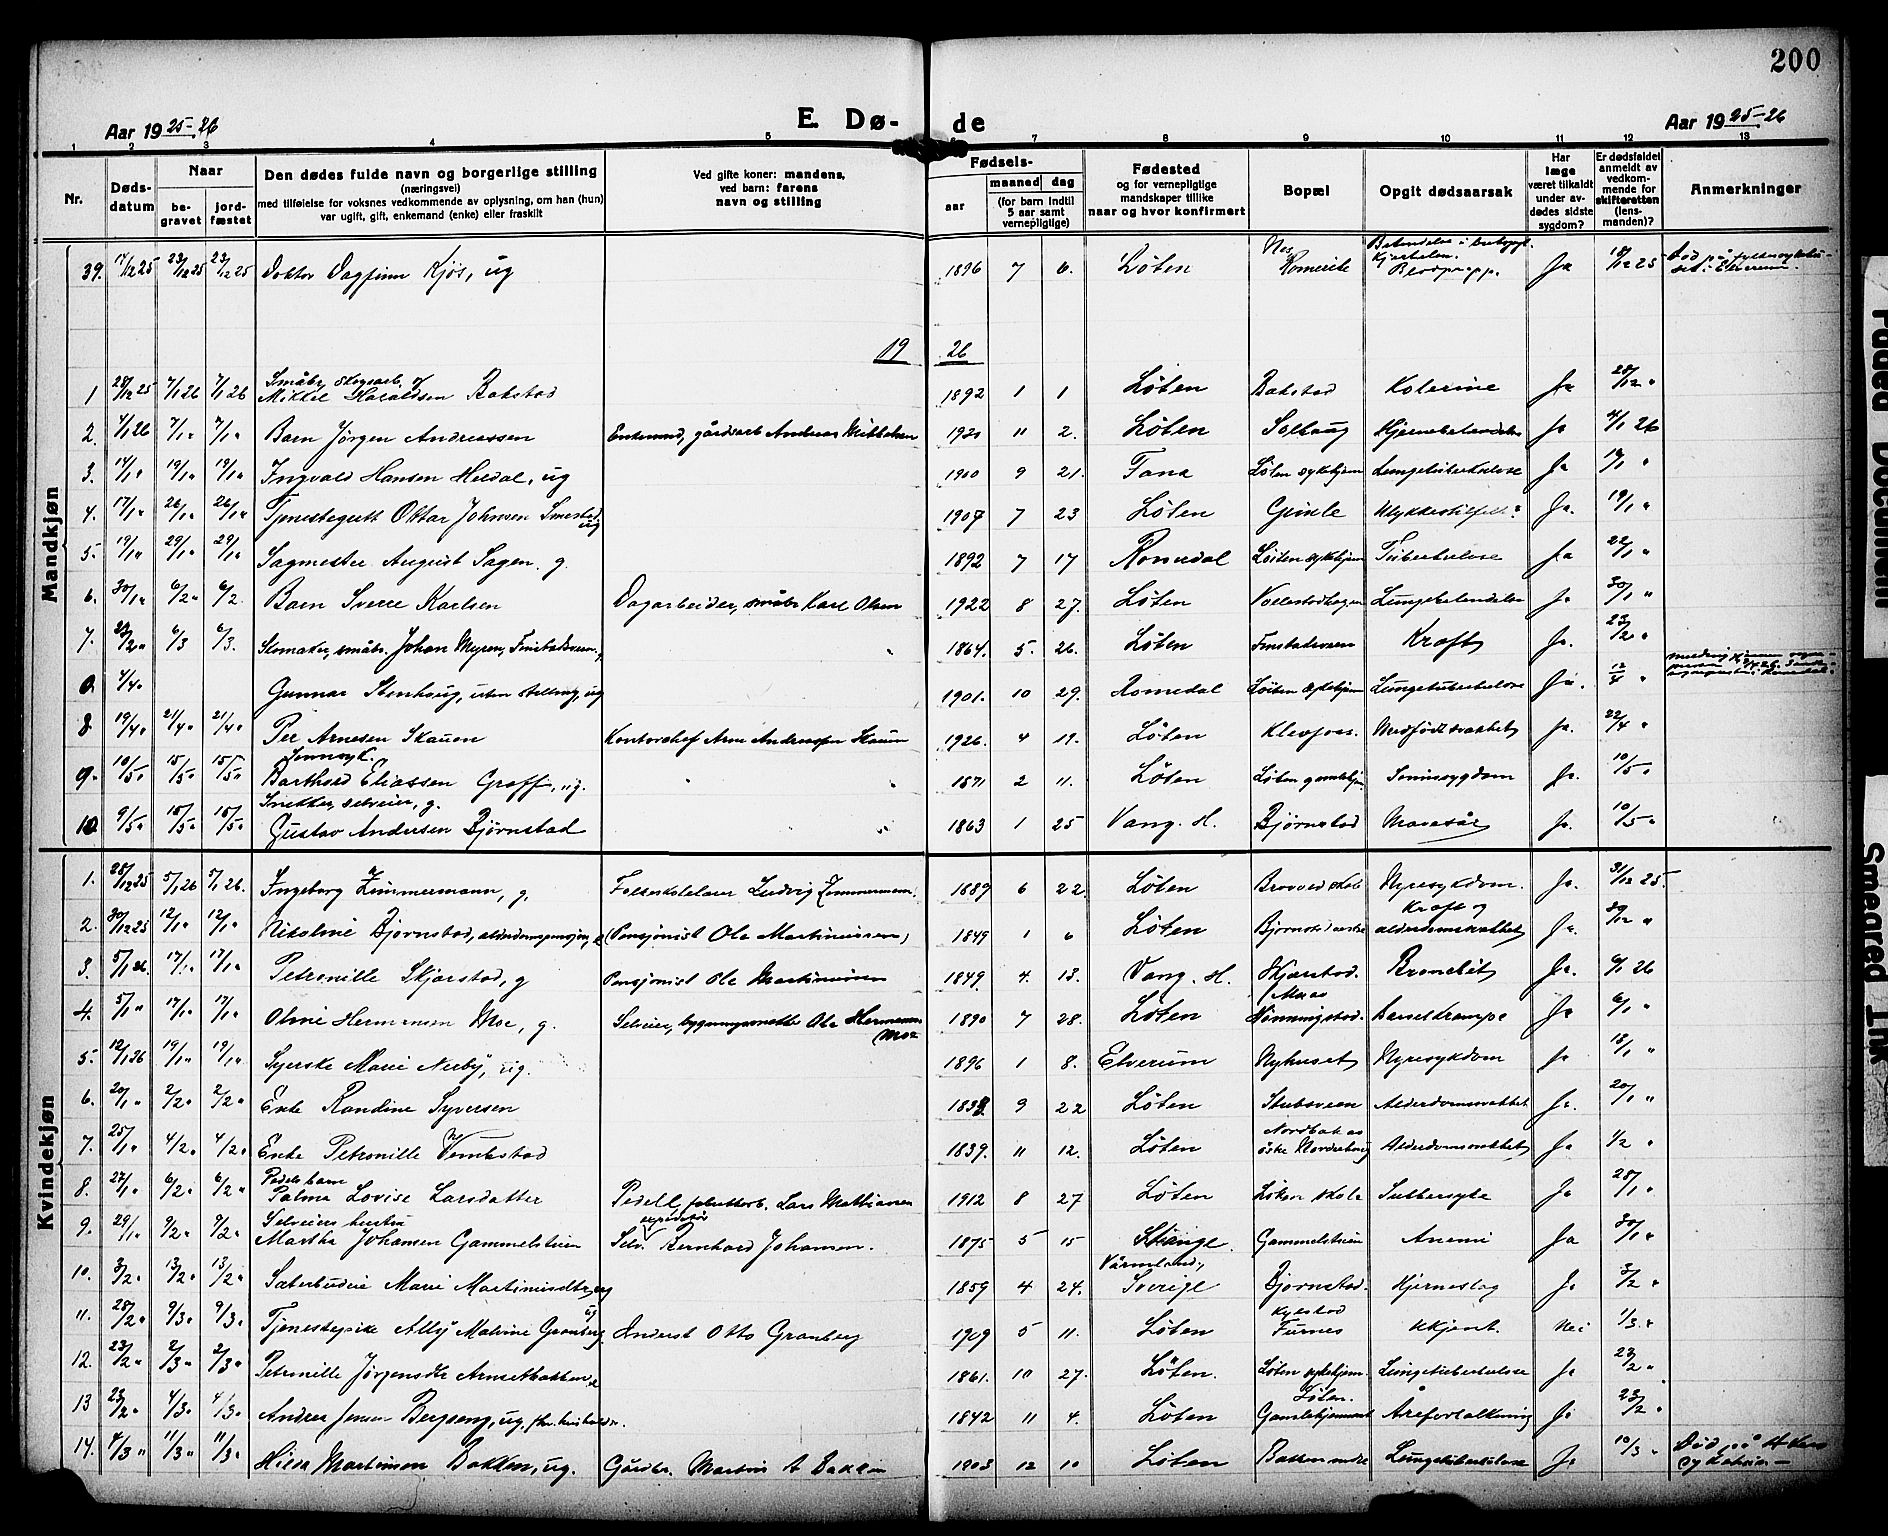 200
E. Dø- de
Aar 1925-26
Aar 1925-26
1 2 3 4 5 7 8 9 10 11 12 13
Nr.
Dødsdatum
Naar
begravet
jordfæstet
Den dødes fulde navn og borgerlige stilling
(næringsvei)
med tilføielse for voksnes vedkommende av oplysning, om han (hun)
var ugift, gift, enkemand (enke) eller fraskilt
Ved gifte koner: mandens,
ved barn: farens
navn og stilling
Fødsels-
aar
maaned
dag
(for barn indtil
5 aar samt
vernepligtige)
Fødested
og for vernepligtige
mandskaper tillike
naar og hvor konfirmert
Bopæl
Opgit dødsaarsak
Har
læge
været tilkaldt
under avdødes sidste
sygdom?
Er dødsfaldet
anmeldt av
vedkommende for
skifteretten
(lensmanden)?
Anmerkninger
Mandkjøn
39. 17/12 25 23/12 25 23/12 25 Doktor Dagfinn Kjøs, ug 1896 7 6. Løten Nes Romerike Blodpropp. Ja 18/12 25
19 26
1 28/12 25 7/1 26 7/1 26 Småbr. skogsarb. Mikkel Haraldsen Bakstad 1892 1 1 Løten Bakstad Kolerine Ja 28/12 "
2. 4/1 26 7/1 " 7/1 " Barn Jørgen Andreassen Enkemand, gårdsarb. Andreas Mikkelsen 11 2. Løten Hjernebetændelse Ja 4/1 26
3. 14/1 " 19/1 " 19/1 " Ingvald Hansen Heldal, ug 1900 9 21. Tana Løten sykehjem Lungetuberkulose Ja "
4. 17/1 " 26/1 " 26/1 " Tjenestegutt Ottar Johnsen Smestad, ug 1907 7 23 Løten Ulykkestilfelle Ja. 19/1 "
5. 19/1 " 29/1 " 29/1 " Sagmester August Sagen. g. 1892 7 17 Romedal Løiten sykehjem Tuberkulose Ja 22/1 "
6. 30/1 " 6/2 " 6/2 Barn Sverre Karlsen Dagarbeider, småbr. Karl Olsen 1922 8 27. Løten Lungebetændelse Ja 30/1 "
7. 23/2 " 6/3 6/3. Skomaker, småbr. Johan Myren, " 1864. 5. 26. Løten Kreft Ja. 23/2 "
0 4/4 " Gunnar Stenhaug, uten stilling, ug 1901. 10 29. Romedal Løiten sykehjem Lungetuberkulose Ja. 12/4 "
8 19/4 " 21/4 " 21/4 " Per Arnesen Skauen Kontorchef Arne Andreassen Skauen 1926. 4 19. Løten Klevfos. Medfødt svakhet Ja. 22/4 "
9. 10/5 " 15/5 " 15/5 " Sinnsyk. Barthold Eliassen Grøff, ug. " " 1871 2 11. Løten Løten gamlehjem Sinnssygdom Ja. 10/5 "
10 9/5 " 15/5 " 15/5 " Snekker, selveier, g. Gustav Andersen Bjørnstad " 1863 1 25 Vang. H. Bjørnstad Mavesår Ja. 10/5 "
Kvindekjøn
1. 28/12 25 5/1 26 5/1 26. Ingeborg Zimmermann, g. Folkeskolelærer Ludvig Zimmermann. 1889 6 22. Løten Nyresykdom. Ja. 31/12 25.
2. 30/12 25 12/1 " 12/1 " Nikoline Bjørnstad, (Pensjonist Ole Martinussen) 1849 1 6 Løten Kreft og alderdomssvakhet Ja. 30/12 "
3. 5/1 26. 17/1 " 17/1 " Petronille Skjærstad, g Pensjonist Ole Martinussen 1849. 4. 13. Vang. H. Skjærstad. Bronchit Ja. 6/1 26
4. 5/1 " 17/1 " 17/1 " Oline Hermansen Moe, g. Selveier, Ole Hermansen (Moe 1890 7 28. Løten Barselkrampe Ja 6/1 "
5. 12/1 26 19/1 " 19/1 " Syerske Marie Neeby, ug. 1896 1 8. Elverum Nyhuset Nyresykdom Ja 18/1 "
6. 20/1 " 2/2 " 2/2 " Enke Randine Syversen 1838 9 22 Løten Stubsveen Alderdomssvakhet Ja. 20/1 "
7. 25/1 " 4/2 " 4/2 " Enke Petronille 1839. 11 12. Løten Alderdomssvakhet Ja 1/2 "
8. 27/1 " 6/2 " 6/2 " Pedels barn Palma Lovise Larsdatter Pedell, Lars Mathiesen 1912 8 27 Løten Løken skole Sukkersyke Ja 28/1 "
9. 29/1 " 9/2 " 9/2 " Selveiers hustru Martha Johansen Gammelstuen Selv. Bernhard Johansen. 1875 5 15 Stange. Gammelstuen Anemi Ja 30/1 "
10. 3/2 " 13/2 " 13/2 " Sæterbudeie Marie Martinusdtr, ug 1859 4 24. Värmland, Sverige Bjørnstad. Hjerneslag Ja 3/2 "
11. 28/2 " 9/3 " 9/3 " Tjenestepike Ally Malvine Granberg, ug Otto Granberg 1909 5 11. Løten Furnes Ukjent. Nei 1/3 "
12. 23/2 " 2/3 " 2/3 " Petronille Jørgensdtr 1861. 10 27. Løten. Løten sykehjem. Lungetuberkulose Ja 23/2 "
13 23/2 " 4/3 " 4/3 " Andrea Jensen Bergseng, ug. 1842 11 4. Løten Løten Gamlehjemmet Åreforkalkning Ja 23/2 "
14. 4/3 " 11/3 " 11/3 " Hilda Martinsen Bakken, ug. Gårdbr. Martin A Bakken 1903 12 10 Løten Bakken nedre Lungetuberkulose Ja 10/3 " Død på Aker sykehus
Faded Document
Smeared Ink